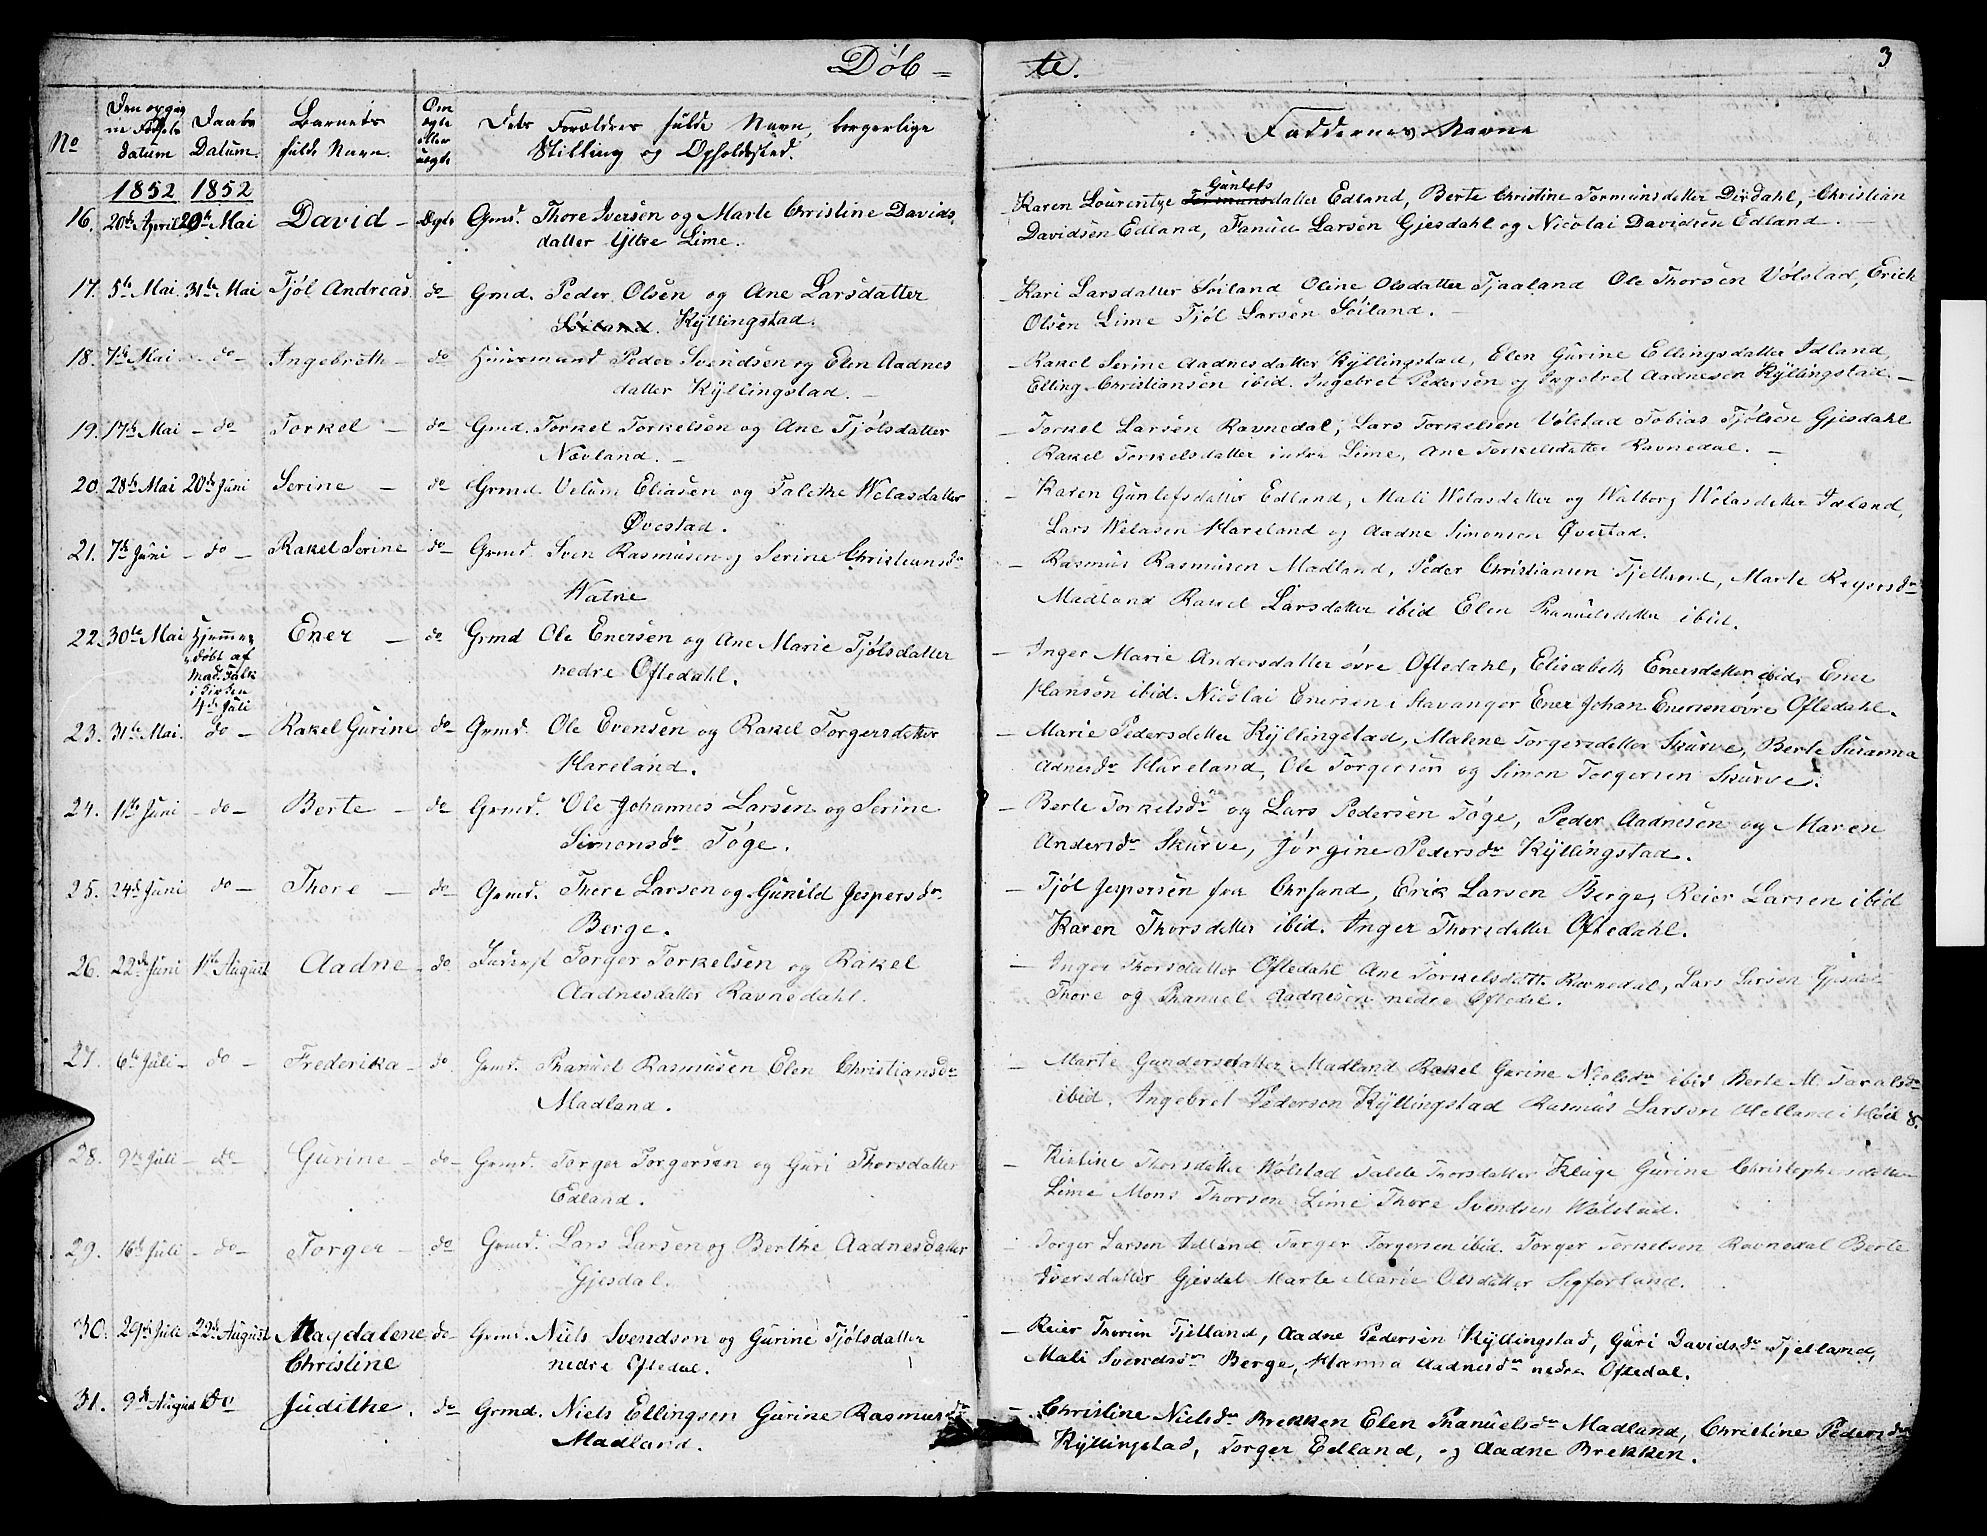 Døb = te. 3
No
Den opgivne Fødsels datum
Daabs Datum.
Barnets fulde Navn.
Om ægte eller uægte
Dets Forældres fulde Navn, borgerlige Stilling og Opholdssted.
Faddernes Navne
1852 1852
16. 20de April 20de Mai David - Ægte Gmd. Thore Iversen og Marte Christine Davids-
datter Ÿttre Lime.
Karen Lourentze Gunlefs datter Edland, Berte Christine Tormunsdatter Dirdahl, Christian
Davidsen Edland, Fanuel Larsen Gjesdahl og Nicolai Davidsen Edland.
17. 5te Mai 31te Mai Tjøl Andreas do Gmd. Peder Olsen og Ane Larsdatter
Søiland. Kÿllingstad.
- Kari Larsdatter Søiland Oline Olsdatter Tjaaland Ole Thorsen Vølstad, Erick
Olsen Lime Tjøl Larsen Søiland. -
18. 7de Mai - do - Ingebreth - do Huusmand Peder Svendsen og Elen Aadnes
datter Kÿllingstad. -
- Rakel Serine Aadnesdatter Kÿllingstad, Elen Gurine Ellingsdatter Idland,
Elling Christiansen ibid. Ingebret Pedersen og Ingebret Aadnesen Kÿllingstad. -
19. 17de Mai - do Torkel - do Gmd. Torkel Torkelsen og Ane Tjølsdatter
Nævland. -
- Torkel Larsen Ravnedal, Lars Torkelsen Vølstad Tobias Tjølsen Gjesdahl
Rakel Torkelsdatter indre Lime, Ane Torkelsdatter Ravnedal. -
20. 28de Mai 20de Juni Serine - do Grmd. Velum Eliasen og Talethe Welasdatter
Øvestad.
- Karen Gunlefsdatter Edland, Mali Welasdatter og Walborg Welasdatter Idland,
Lars Welasen Hareland og Aadne Simonsen Øvestad.
21. 7de Juni - do - Rakel Serine do Grmd. Sven Rasmusen og Serine Christiansdr
Watne
- Rasmus Rasmusen Madland, Peder Christiansen Tjelland, Marte Reyersdr
Madland Rakel Larsdatter ibid Elen Phanuelsdatter ibid.
22. 30te Mai Hjemme-
døbt af
Mad. Falk
i Kirken
4de Juli
Ener - do Grmd Ole Enersen og Ane Marie Tjølsdatter
nedre Oftedahl.
- Inger Marie Andersdatter øvre Oftedahl, Elisabeth Enersdatter ibid, Ener
Hansen ibid. Nicolai Enersen i Stavanger Ener Johan Enersen øvre Oftedahl.
23. 31te Mai. do - Rakel Gurine do Grmd. Ole Evensen og Rakel Torgersdatter
Hareland.
- Marie Pedersdatter Kÿllingstad, Malene Torgersdatter Skurve, Berte Susanna
Adnesdr Hareland, Ole Torgersen og Simon Torgersen Skurve.
24. 11te Juni - do - Berte - do Grmd. Ole Johannes Larsen og Serine
Simonsdr Tøge.
- Berte Torkelsdr og Lars Pedersen Tøge, Peder Aadnesen og Maren
Andersdr Skurve, Jørgine Pedersdr Kÿllingstad.
25. 24de Juni do - Thore - do Grmd. Thore Larsen og Gunild Jespersdr
Berge.
- Tjøl Jespersen fra Chrsand, Erik Larsen Berge, Reier Larsen ibid
Karen Thorsdatter ibid. Inger Thorsdatter Oftedahl.
26. 22de Juni 1ste August Aadne - do Inderst Torger Torkelsen og Rakel
Aadnesdatter Ravnedahl.
- Inger Thorsdatter Oftedahl Ane Torkelsdatt. Ravnedal, Lars Larsen Gjesdal
Thore og Phanuel Aadnesen nedre Oftedal.
27. 6te Juli - do - Frederika - do Grmd. Phanuel Rasmusen Elen Christiansdr
Madland.
- Marte Gundersdatter Madland Rakel Gurine Nielsdr ibid Berte M. Taralsdr
ibid. Ingebret Pedersen Kÿllingstad Rasmus Larsen Aleland i Høil &.
28. 9de Juli - do - Gurine - do - Grmd. Torger Torgersen og Guri Thorsdatter
Edland.
- Kirstine Thorsdatter Wølstad Talle Thorsdatter Kluge Gurine Christophersdatter
Lime Mons Thorsen Lime Thore Svendsen Wølstad.
29. 16de Juli - do - Torger - do Grmd. Lars Larsen og Berthe Aadnesdatter
Gjesdal.
- Torger Larsen Idland Torger Torgersen ibid. Torger Torkelsen Ravnedal Berte
Iversdatter Gjesdal Marte Marie Olsdatter Segforland.
30. 29de Juli 22de August Magdalene Christine do Grmd. Niels Svendsen og Gurine Tjølsdatter
nedre Oftedal.
- Reier Thorsen Tjelland, Aadne Pedersen Kÿllingstad, Guri Davidsdr Tjelland,
Mali Svendsdr Berge, Hanna Aadnesdr nedre Oftedal.
31. 9de August do Judithe. do Grmd. Niels Ellingsen Gurine Rasmusdr
Madland.
- Christine Nielsdr Brekken Elen Phanuelsdr Madland, Christine Pedersdr
Kÿllingstad, Torger Edland, og Aadne Brekken.